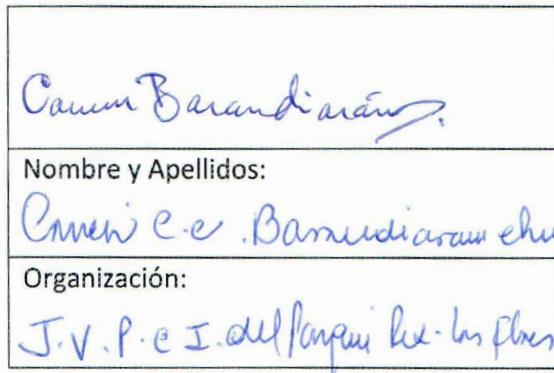 Carmen Barandiarán
Nombre y Apellidos:
Carmen C.C. Barandiaran
Organización:
J.V.P. e I. del Parque Res. Las Flores